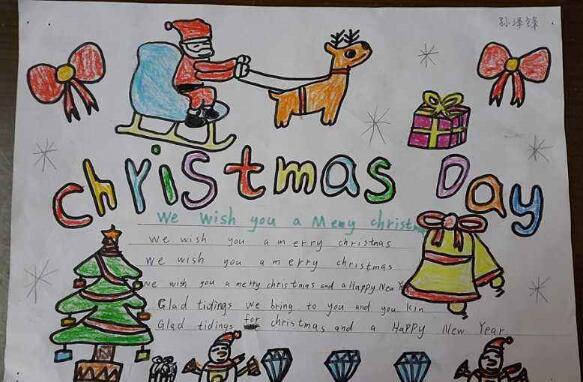 孙泽锋
Christmas Day
We wish you a Merry christm
We wish you a merry christmas
We wish you a merry christmas
We wish you a merry christmas and a Happy New Y
Glad tidings we bring to you and you kin
Glad tidings for christmas and a Happy New Year